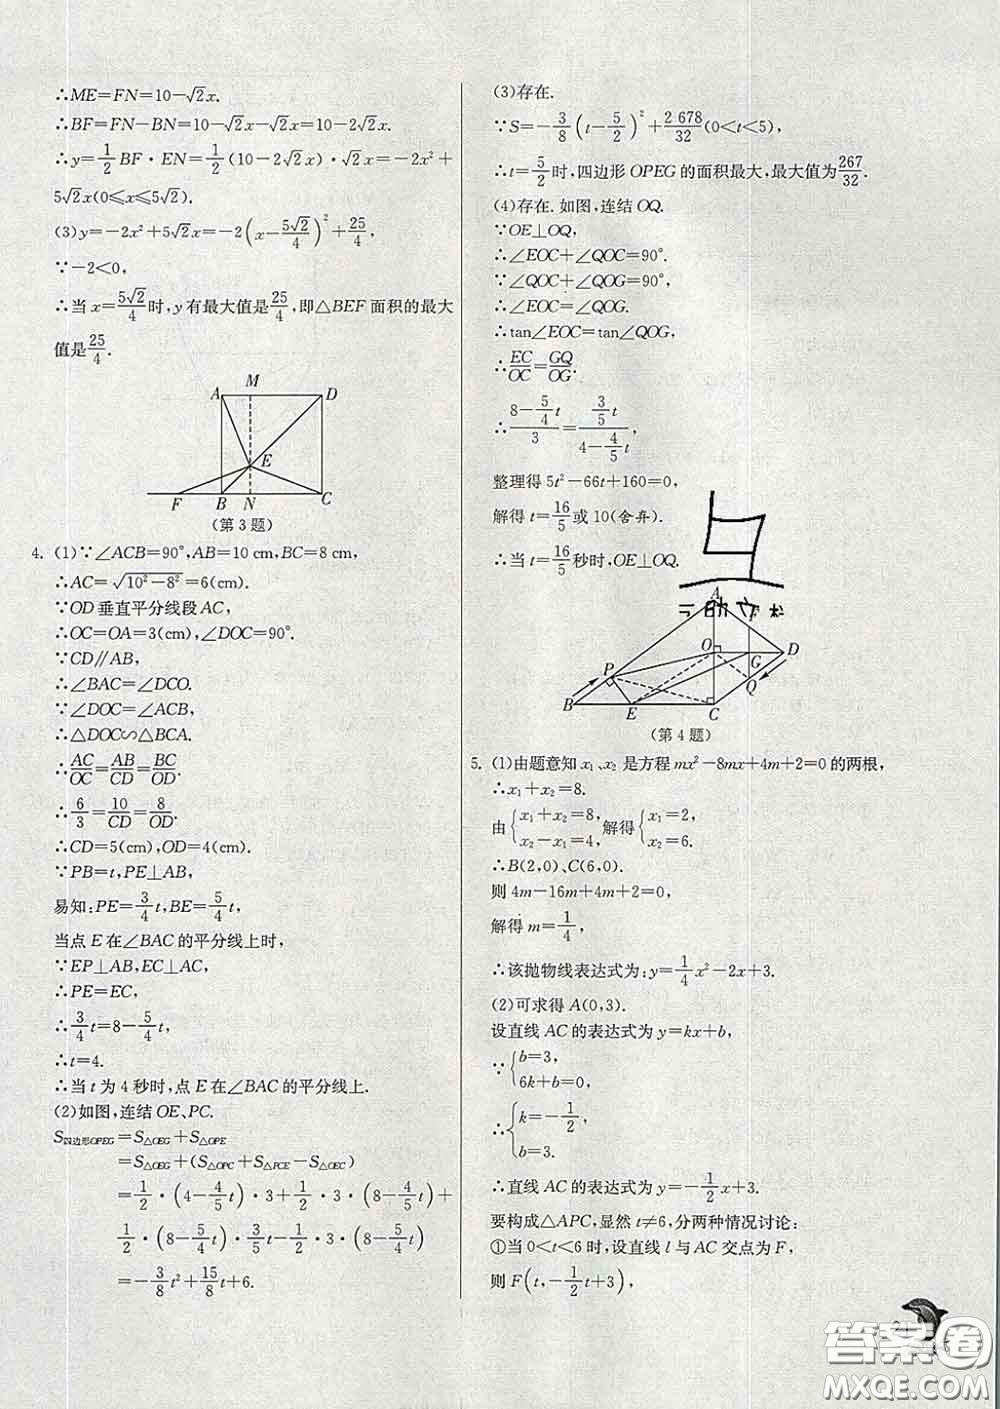 ∴ME=FN=10-√2x.
∴BF=FN-BN=10-√2x-√2x=10-2√2x.
∴y=1/2 BF·EN=1/2(10-2√2x)·√2x=-2x²+
5√2x(0≤x≤5√2).
(3)y=-2x²+5√2x=-2(x-5√2/4)²+25/4,
∵-2<0,
∴当 x=5√2/4时,y有最大值是25/4,即△BEF面积的最大
值是25/4.
A M D
E
F B N C
(第3题)
4. (1)∵∠ACB=90°,AB=10 cm,BC=8 cm,
∴AC=√(10²-8²)=6(cm).
∵OD垂直平分线段AC,
∴OC=OA=3(cm),∠DOC=90°.
∵CD∥AB,
∴∠BAC=∠DCO.
∵∠DOC=∠ACB,
∴△DOC∽△BCA.
∴AC/OC=AB/CD=BC/OD.
∴6/3=10/CD=8/OD.
∴CD=5(cm),OD=4(cm).
∵PB=t,PE⊥AB,
易知:PE=3/4t,BE=5/4t,
当点E在∠BAC的平分线上时,
∵EP⊥AB,EC⊥AC,
∴PE=EC,
∴3/4t=8-5/4t,
∴t=4.
∴当t为4秒时,点E在∠BAC的平分线上.
(2)如图,连结OE、PC.
S四边形OPEG=S△OEG+S△OPE
=S△OEG+(S△OPC+S△PCE-S△OEC)
=1/2·(4-4/5t)·3+1/2·3·(8-4/5t)+
1/2·(8-5/4t)·3/5t-1/2·3·(8-5/4t)
=-3/8t²+15/8t+6.
(3)存在.
∵S=-3/8(t-5/2)²+2 678/32(0<t<5),
∴t=5/2时,四边形OPEG的面积最大,最大值为267/32.
(4)存在.如图,连结OQ.
∵OE⊥OQ,
∴∠EOC+∠QOC=90°.
∵∠QOC+∠QOG=90°,
∴∠EOC=∠QOG.
∴tan∠EOC=tan∠QOG,
∴EC/OC=GQ/OG.
∴(8-5/4t)/3=(3/5t)/(4-4/5t),
整理得5t²-66t+160=0,
解得t=16/5或10(舍弃).
∴当t=16/5秒时,OE⊥OQ.
A
O D
P G
Q
B E C
(第4题)
5. (1)由题意知x₁、x₂是方程mx²-8mx+4m+2=0的两根,
∴x₁+x₂=8.
由{x₁+x₂=8, x₂-x₁=4,解得{x₁=2, x₂=6.
∴B(2,0)、C(6,0).
则4m-16m+4m+2=0,
解得m=1/4,
∴该抛物线表达式为:y=1/4x²-2x+3.
(2)可求得A(0,3).
设直线AC的表达式为y=kx+b,
∵{b=3, 6k+b=0,
∴{k=-1/2, b=3.
∴直线AC的表达式为y=-1/2x+3.
要构成△APC,显然t≠6,分两种情况讨论:
①当0<t<6时,设直线l与AC交点为F,
则F(t,-1/2t+3),
答案圈
MXQE.COM